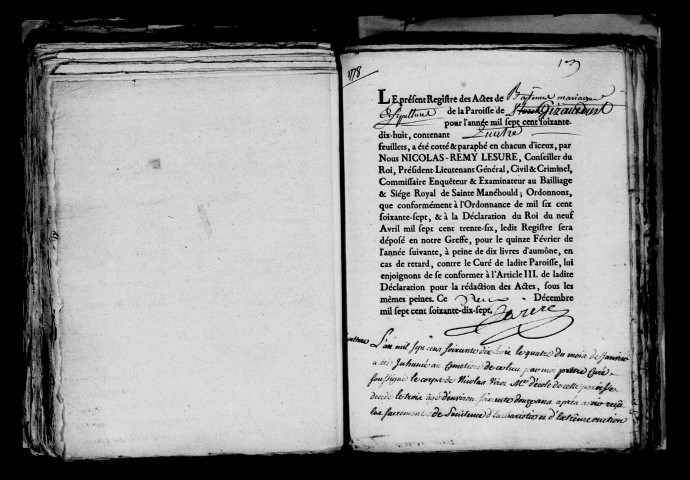 1778
LE présent Registre des Actes de Baptêmes mariages
& Sépulture de la Paroisse de Girauduot
pour l'année mil sept cent soixante-
dix-huit, contenant quatre
feuillets, a été cotté & paraphé en chacun d'iceux, par
Nous NICOLAS-REMY LESURE, Conseiller du
Roi, Président-Lieutenant Général, Civil & Criminel,
Commissaire Enquêteur & Examinateur au Bailliage
& Siége Royal de Sainte Manéhould ; Ordonnons,
que conformément à l'Ordonnance de mil six cent
soixante-sept, & à la Déclaration du Roi du neuf
Avril mil sept cent trente-six, ledit Registre sera
déposé en notre Greffe, pour le quinze Février de
l'année suivante, à peine de dix livres d'aumône, en
cas de retard, contre le Curé de ladite Paroisse, lui
enjoignons de se conformer à l'Article III. de ladite
Déclaration pour la rédaction des Actes, sous les
mêmes peines. Ce Décembre
mil sept cent soixante-dix-sept.
L'an mil sept cens soixante dix huit le quatre du mois de Janvier
a été Inhumé au Cimetiere de ce lieu par moi prêtre Curé
soussigné le corps de Nicolas M.re d'école de cette paroisse
decedé le trois âgé d'environ soixante douze ans après avoir reçu
les sacremens de Penitence d'Eucharistie et d'Extrême onction